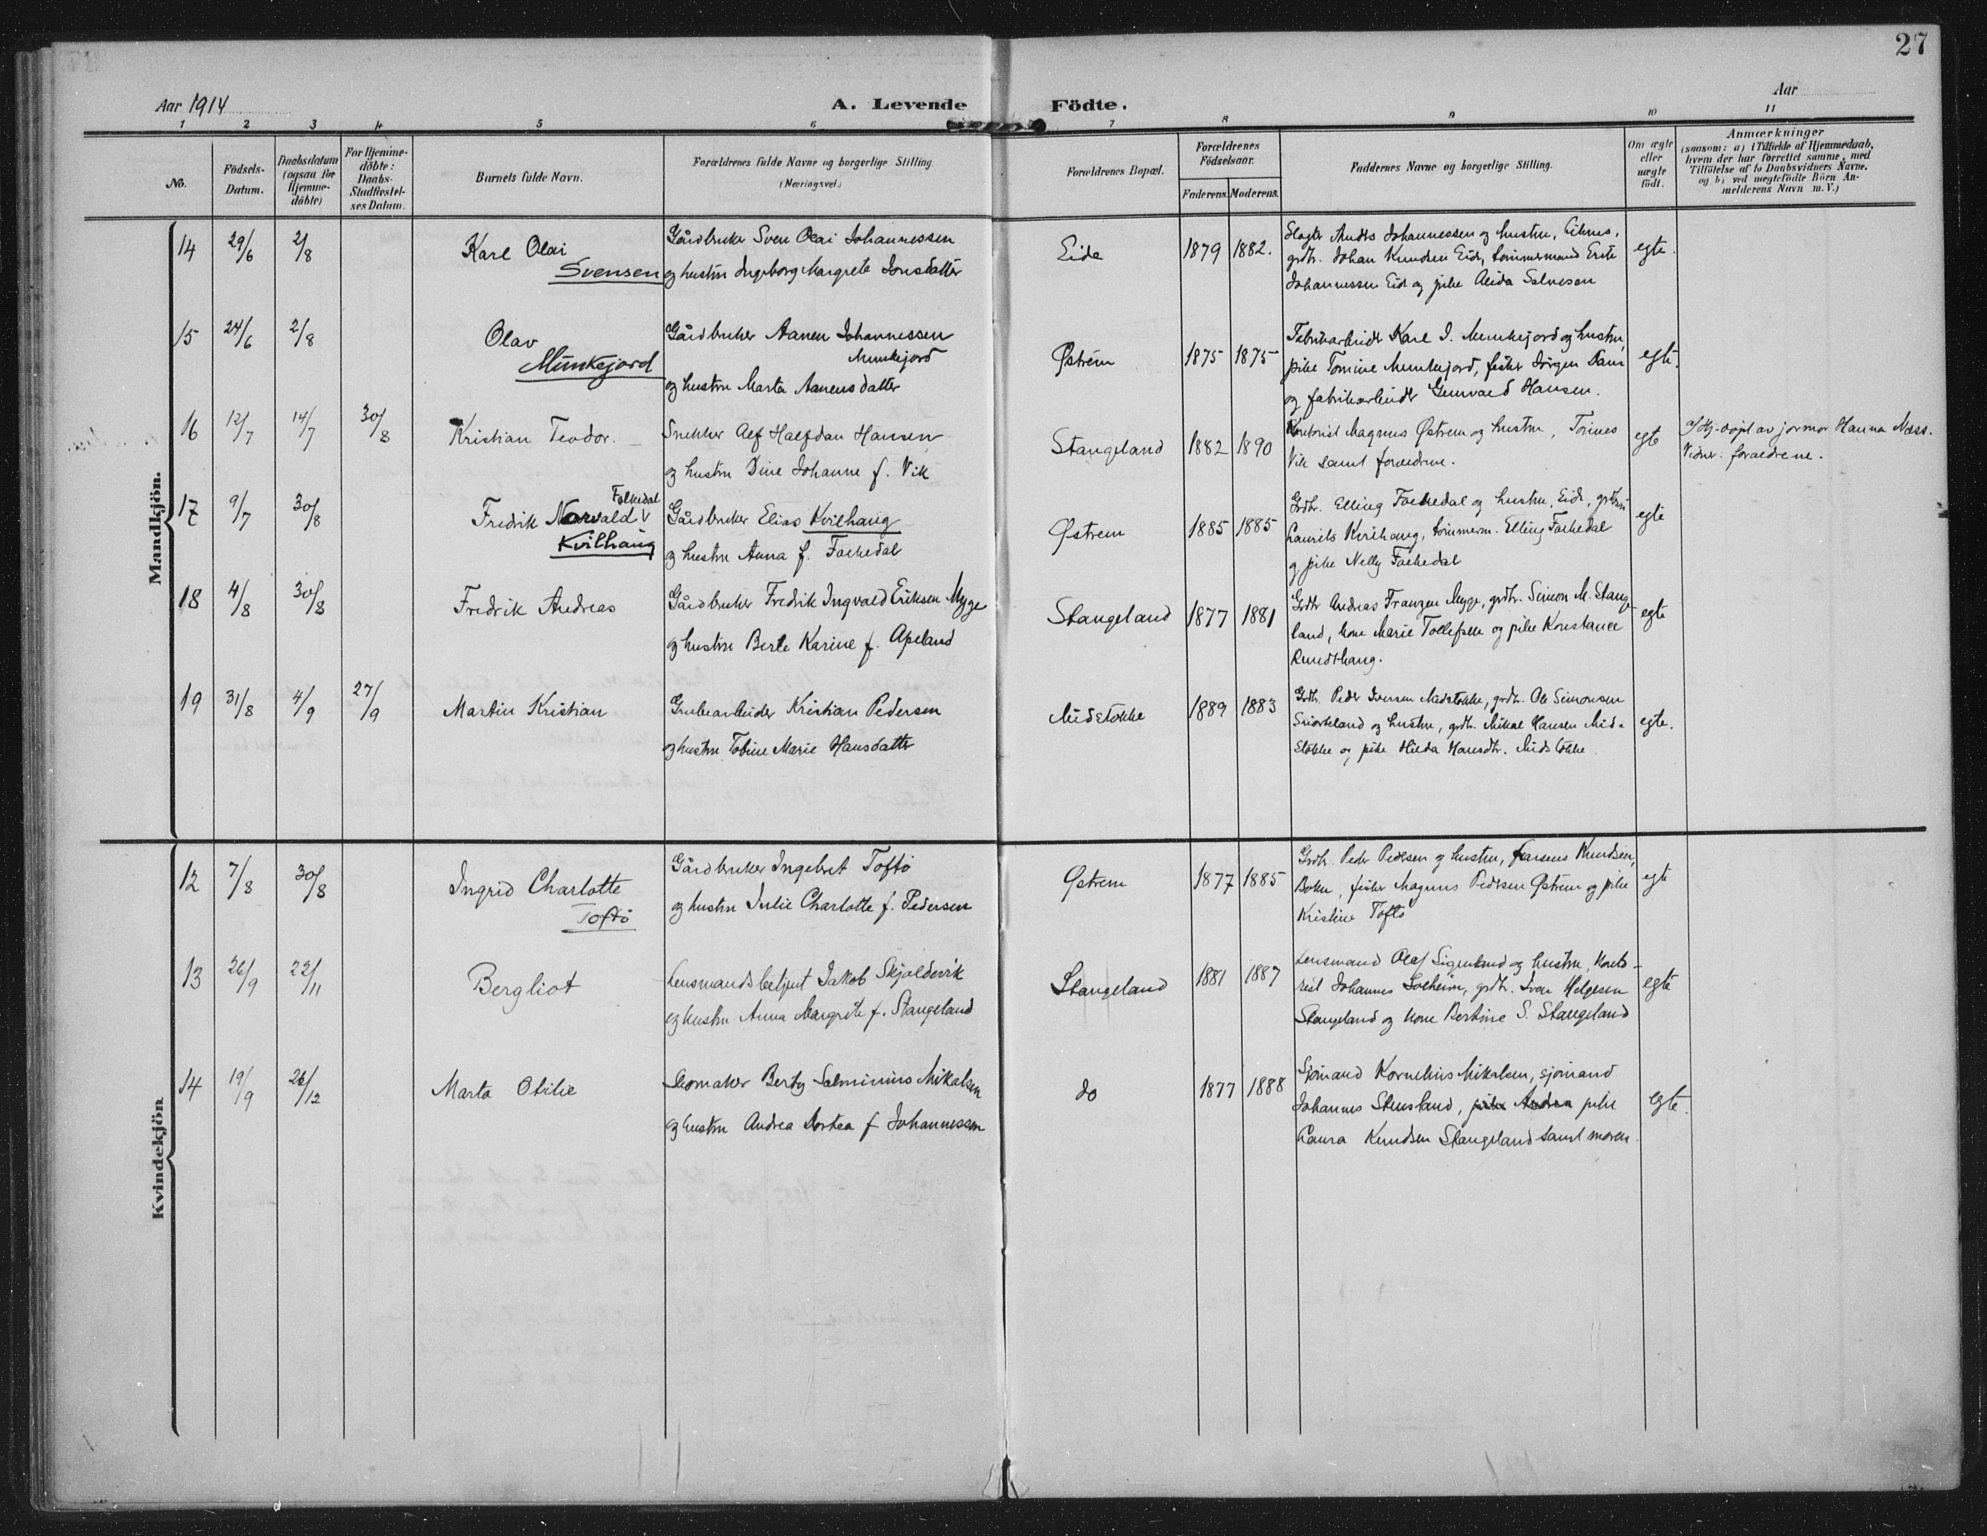 27
Aar 1914
A. Levende Födte.
Aar
1 2 3 4 5 6 7 8 9 10 11
No.
Födsels-
Datum.
Daabsdatum
(ogsaa for
Hjemme-
döbte)
For Hjemme-
döbte:
Daabs-
Stadfæstel-
ses Datum.
Barnets fulde Navn.
Forældrenes fulde Navne og borgerlige Stilling.
(Næringsvei.)
Forældrenes Bopæl.
Forældrenes
Födselsaar.
Faderens. Moderens.
Faddernes Navne og borgerlige Stilling.
Om ægte
eller
uægte
født.
Anmærkninger
(saasom: a) i Tilfælde af Hjemmedaab,
hvem der har forrettet samme, med
Tilföielse af to Daabsvidners Navne,
og b) ved uægtefödte Börn An-
melderens Navn m. V.)
Mandkjön.
14 29/6 2/8
Karl Olai
Svensen
Gårdbruker Sven Olai Johannessen
og hustru Ingeborg Margrete Jonsdatter
Eide 1879 1882.
Johannessen og hustru,
grdbr. Johan Knudsen Eide, tømmermand
Johannessen Eide og pike Alida Salvesen
egte.
15 24/6 2/8
Olav
Munkejord
Gårdbruker Aanen Johannessen
Munkejord
og hustru Marta Aanensdatter
Østrem 1875 1875
Fabrikarbeider Karl J. Munkejord og hustru,
pike Tomine Munkejord, fisker Jørgen
og fabrikarbeider Gunvald Hansen.
egte.
16 12/7 14/7 30/8
Kristian Teodor.
Snekker Alf Halfdan Hansen
og hustru Dine Johanne f. Vik
Stangeland 1882 1890
Magnus Østrem og hustru, Tomes
Vik samt forældrene.
egte
av jormor Hanna Næss.
Vidner: forældrene.
17 9/7 30/8
Falkedal
Fredrik Norvald V
Kvilhaug
Gårdbruker Elias Kvilhaug
og hustru Anna f. Falkedal
Østrem 1885 1885
Grdbr. Elling Falkedal og hustru, Eide,
Laurits Kvilhaug, tømmerm. Elling Falkedal
og pike Nelly Falkedal
egte
18 4/8 30/8
Fredrik Andreas
Gårdbruker Fredrik Ingvald Eriksen Myge
og hustru Berte Karine f. Apeland
Stangeland 1877 1881
Grdbr Andreas Franzen Myge, grdbr. Simon M. Stange-
land, kone Marie Tollefsen og pike Konstance
Rundthaug.
egte
19 31/8 4/9 27/9
Martin Kristian
Grubearbeider Kristian Pedersen
og hustru Tobine Marie Hansdatter
Midstokke 1889 1883
Grdbr. Peder Iversen Midstokke, grdbr. Ole Simonsen
Snørteland og hustru, grdbr. Mikal Hansen Mid-
stokke og pike Hilda Hansdtr. Midstokke
egte.
Kvindekjön
12 7/8 30/8
Ingrid Charlotte
Toftø
Gårdbruker Ingebret Toftø
og hustru Julie Charlotte f. Pedersen
Østrem 1877 1885
Grdbr. Peder Pedersen og hustru, Knudsen,
Bokn, fisker Magnus Pedersen Østrem og pike
Kristine Toftø
egte
13 26/9 22/11
Bergliot
Lensmandsbetjent Jakob Skjoldevik
og hustru Anna Margrete f. Stangeland
Stangeland 1881 1887
Lensmand Olaf Sigenland og hustru, konto-
rist Johannes Solheim, grdbr. Iver Helgesen
Stangeland og kone Bertine S. Stangeland
egte
14 19/9 26/12
Marta Otilie
Skomaker Berty Salminius Mikalsen
og hustru Andrea Dortea f Johannessen
do 1877 1888
Sjømand Kornelius Mikalsen, sjømand
Johannes Stensland, pike Andrea pike
Laura Knudsen Stangeland samt moren.
egte.